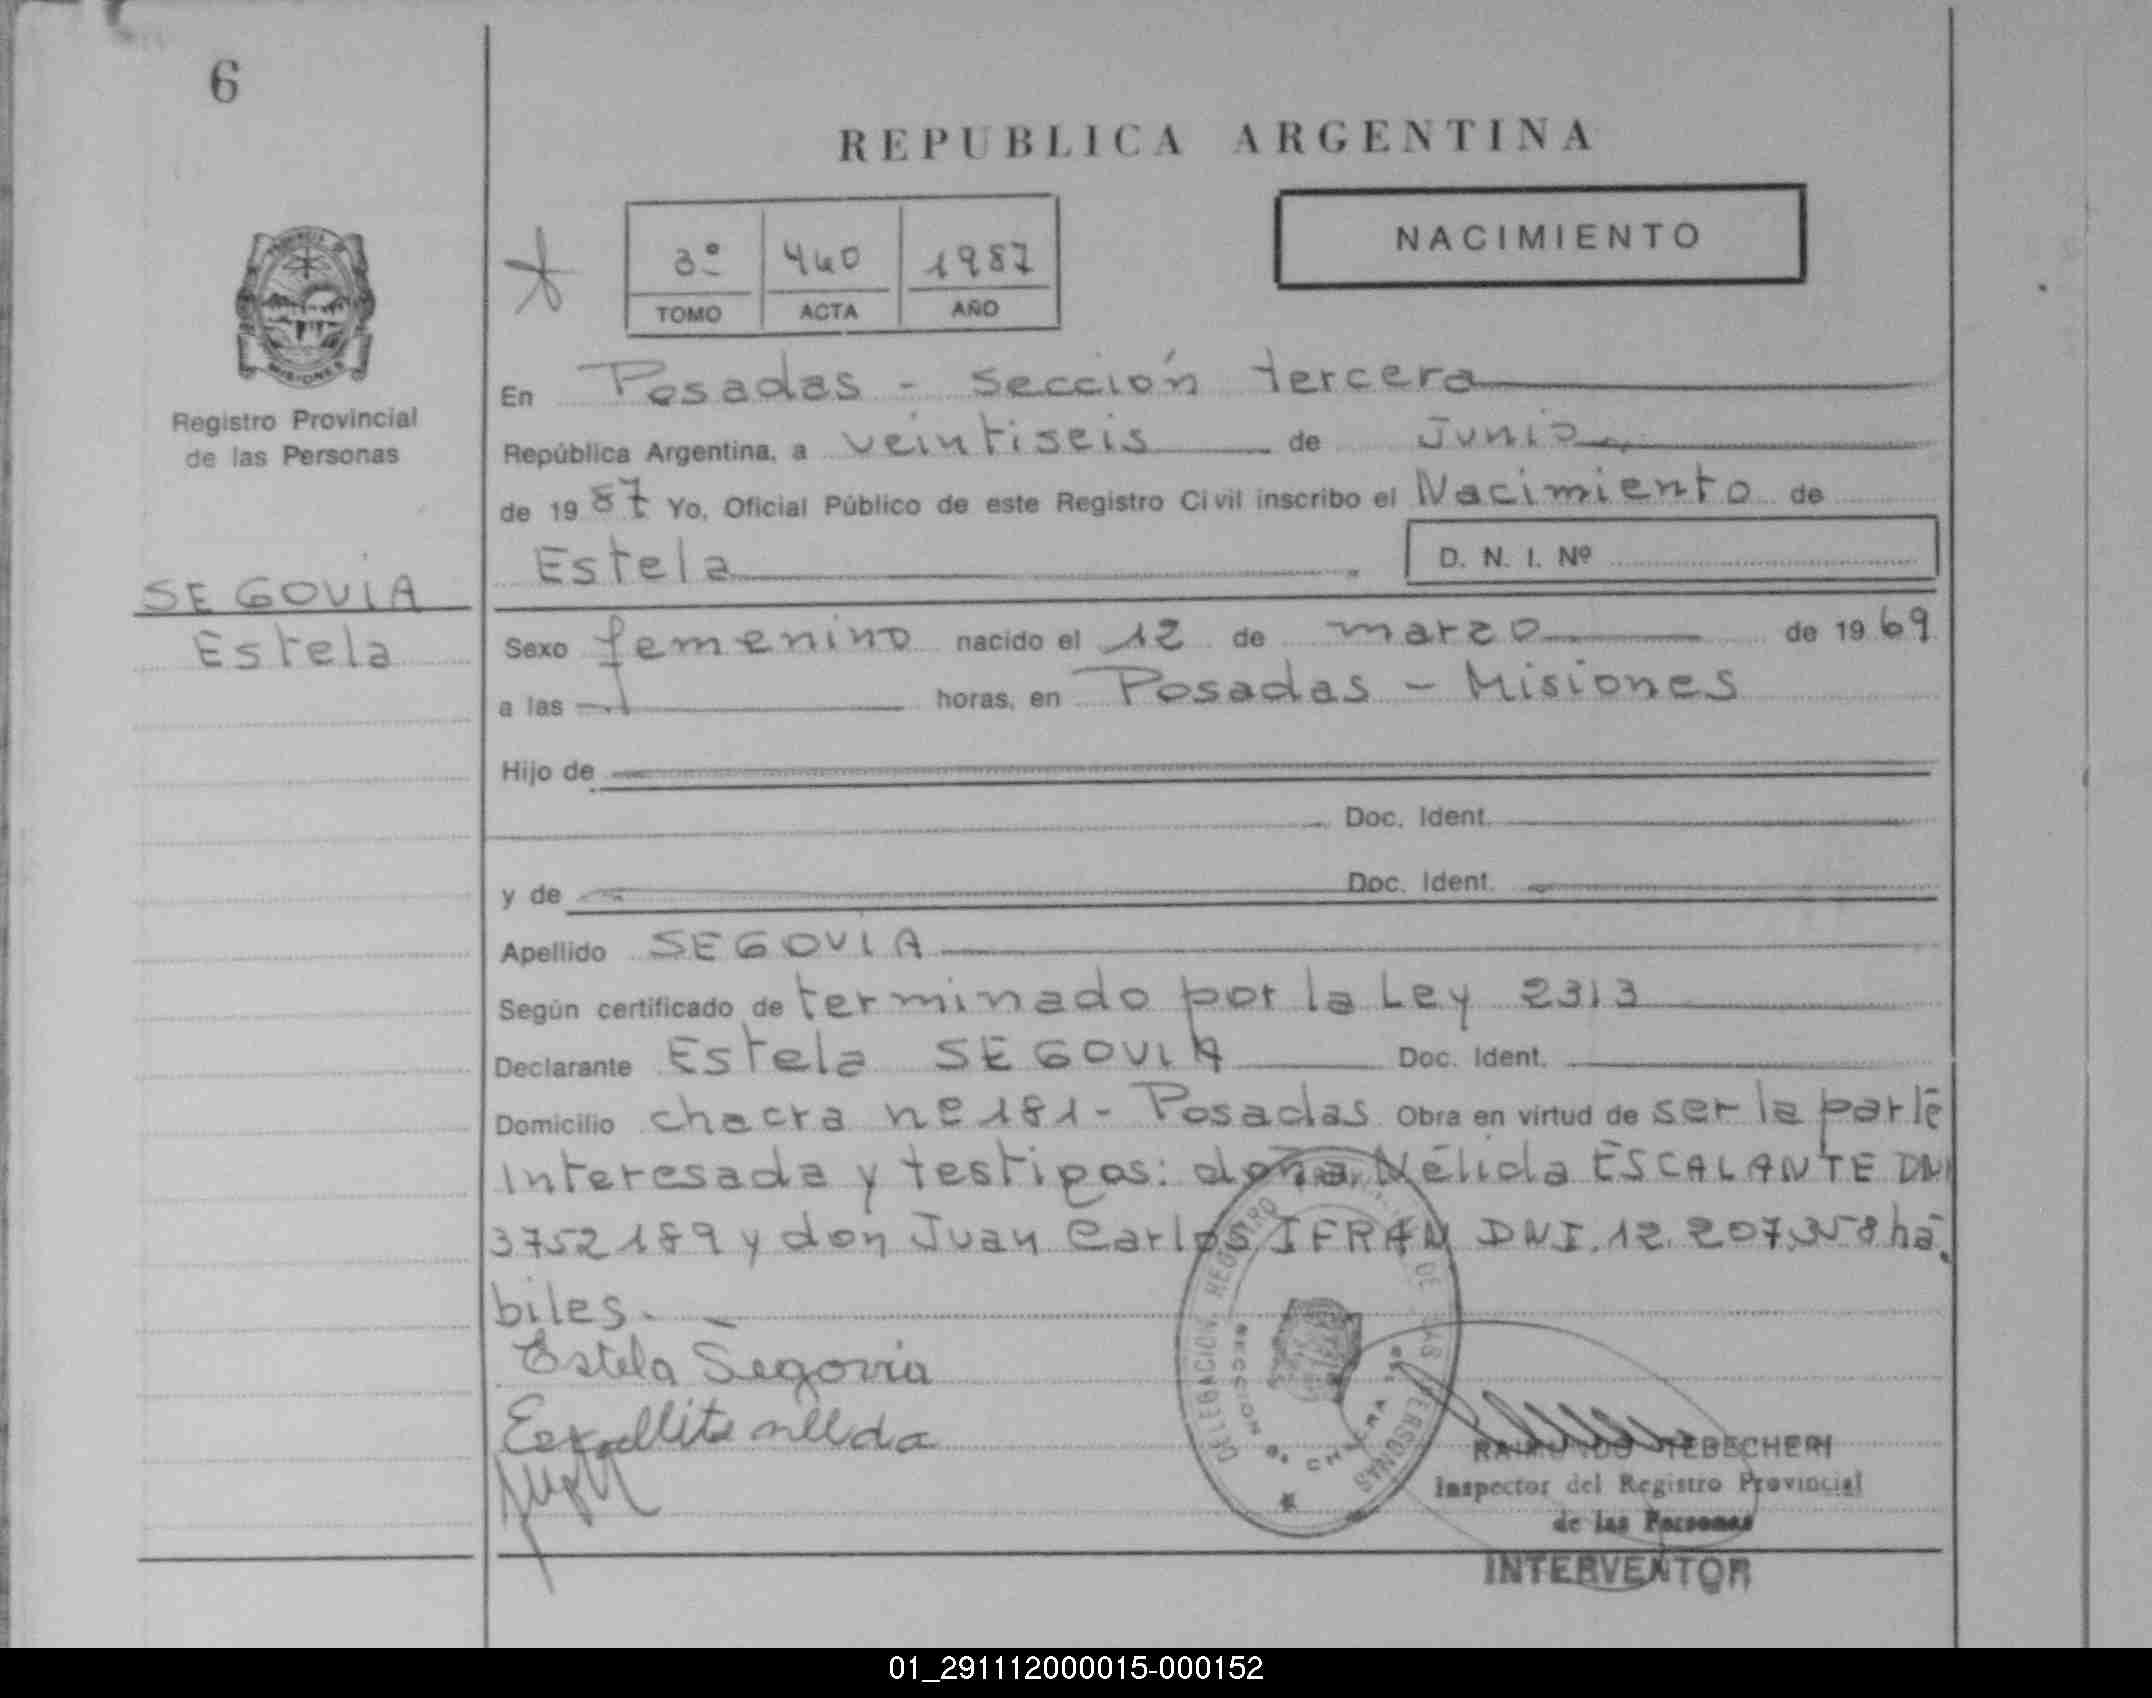 6
REPUBLICA ARGENTINA
3º 440 1987
TOMO ACTA AÑO
NACIMIENTO
MISIONES
Registro Provincial
de las Personas
En Posadas - sección tercera
República Argentina, a veintiseis de Junio
de 1987 Yo, Oficial Público de este Registro Civil inscribo el Nacimiento de
Estela
D. N. I. Nº
SEGOVIA
Estela
Sexo femenino nacido el 12 de marzo de 1969
a las horas, en Posadas - Misiones
Hijo de
Doc. Ident.
y de Doc. Ident.
Apellido SEGOVIA
Según certificado de terminado por la Ley 2313
Declarante Estela SEGOVIA Doc. Ident.
Domicilio chacra nº 181 - Posadas Obra en virtud de ser la parte
interesada y testigos: doña Nélida ESCALANTE DNI
3752189 y don Juan Carlos IFRAN DNI. 12.207.358 há
biles.
Estela Segovia
DELEGACION REGISTRO DE LAS PERSONAS
RAIMUNDO TEBECHERI
Inspector del Registro Provincial
de las Personas
INTERVENTOR
01_291112000015-000152